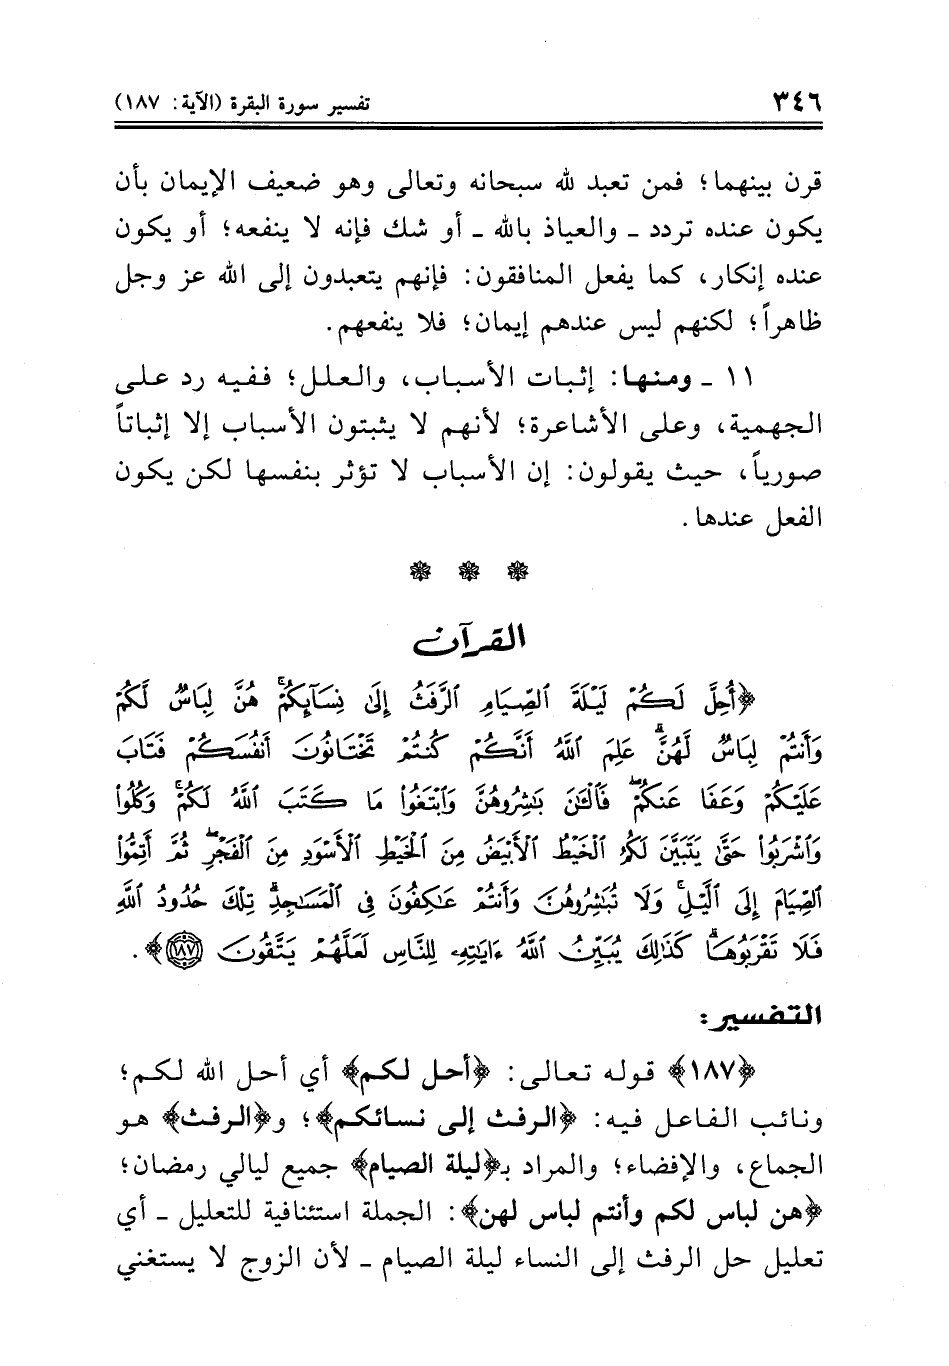 ٣٤٦ تفسير سورة البقرة (الآية: ١٨٧)
قرن بينهما؛ فمن تعبد لله سبحانه وتعالى وهو ضعيف الإيمان بأن
يكون عنده تردد ـ والعياذ بالله ـ أو شك فإنه لا ينفعه؛ أو يكون
عنده إنكار، كما يفعل المنافقون: فإنهم يتعبدون إلى الله عز وجل
ظاهراً؛ لكنهم ليس عندهم إيمان؛ فلا ينفعهم.
١١ ـ ومنها: إثبات الأسباب، والعلل؛ ففيه رد على
الجهمية، وعلى الأشاعرة؛ لأنهم لا يثبتون الأسباب إلا إثباتاً
صورياً، حيث يقولون: إن الأسباب لا تؤثر بنفسها لكن يكون
الفعل عندها.
القرآن
﴿أُحِلَّ لَكُمْ لَيْلَةَ ٱلصِّيَامِ ٱلرَّفَثُ إِلَىٰ نِسَآئِكُمْ ۚ هُنَّ لِبَاسٌ لَّكُمْ
وَأَنتُمْ لِبَاسٌ لَّهُنَّ ۗ عَلِمَ ٱللَّهُ أَنَّكُمْ كُنتُمْ تَخْتَانُونَ أَنفُسَكُمْ فَتَابَ
عَلَيْكُمْ وَعَفَا عَنكُمْ ۖ فَٱلْـَٰٔنَ بَـٰشِرُوهُنَّ وَٱبْتَغُوا۟ مَا كَتَبَ ٱللَّهُ لَكُمْ ۚ وَكُلُوا۟
وَٱشْرَبُوا۟ حَتَّىٰ يَتَبَيَّنَ لَكُمُ ٱلْخَيْطُ ٱلْأَبْيَضُ مِنَ ٱلْخَيْطِ ٱلْأَسْوَدِ مِنَ ٱلْفَجْرِ ۖ ثُمَّ أَتِمُّوا۟
ٱلصِّيَامَ إِلَى ٱلَّيْلِ ۚ وَلَا تُبَـٰشِرُوهُنَّ وَأَنتُمْ عَـٰكِفُونَ فِى ٱلْمَسَـٰجِدِ ۗ تِلْكَ حُدُودُ ٱللَّهِ
فَلَا تَقْرَبُوهَا ۗ كَذَٰلِكَ يُبَيِّنُ ٱللَّهُ ءَايَـٰتِهِۦ لِلنَّاسِ لَعَلَّهُمْ يَتَّقُونَ ١٨٧﴾.
التفسير:
﴿١٨٧﴾ قوله تعالى: ﴿أحل لكم﴾ أي أحل الله لكم؛
ونائب الفاعل فيه: ﴿الرفث إلى نسائكم﴾؛ و﴿الرفث﴾ هو
الجماع، والإفضاء؛ والمراد بـ﴿ليلة الصيام﴾ جميع ليالي رمضان؛
﴿هن لباس لكم وأنتم لباس لهن﴾: الجملة استئنافية للتعليل ـ أي
تعليل حل الرفث إلى النساء ليلة الصيام ـ لأن الزوج لا يستغني